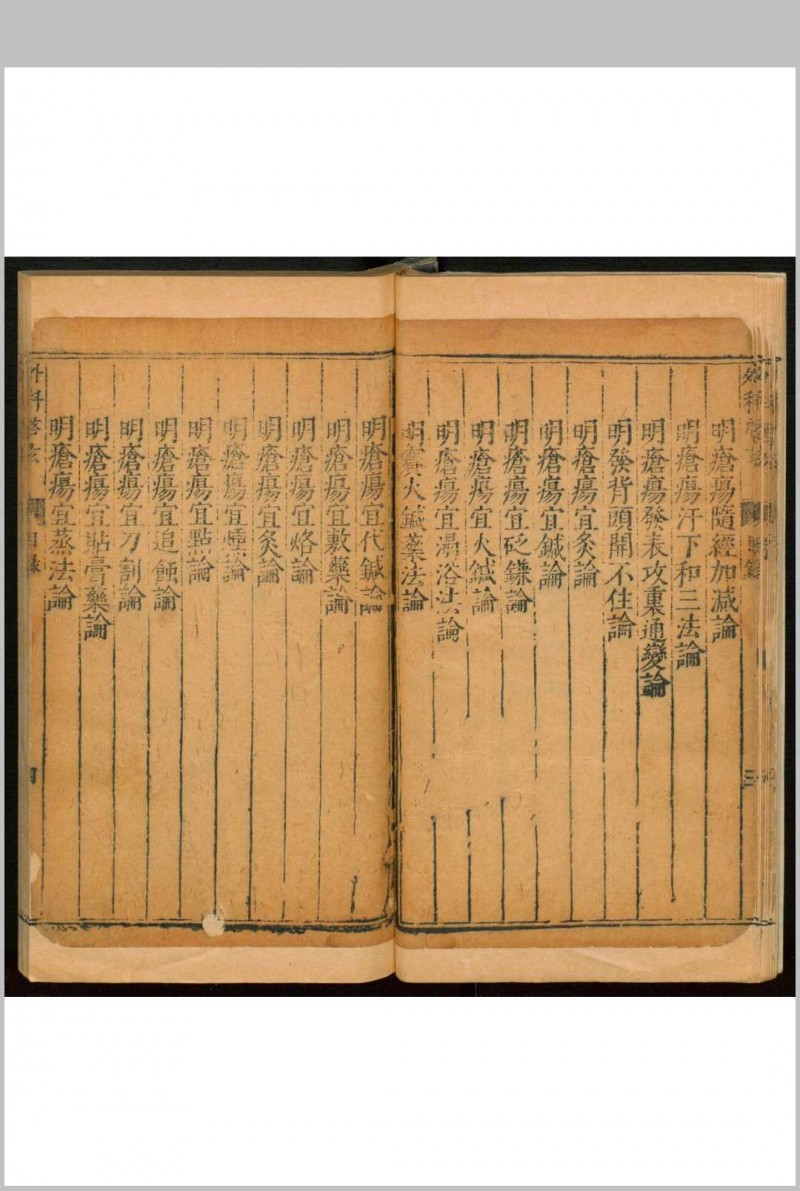 明瘡瘍隨經加減論
明瘡瘍汗下和三法論
明瘡瘍發表攻裏通變論
明發背頭開不住論
明瘡瘍宜灸論
明瘡瘍宜鍼論
明瘡瘍宜砭鎌論
明瘡瘍宜火鍼論
明瘡瘍宜溻浴法論
明賽火鍼藥法論
明瘡瘍宜代鍼論
明瘡瘍宜敷藥論
明瘡瘍宜烙論
明瘡瘍宜灸論
明瘡瘍宜論
明瘡瘍宜點論
明瘡瘍宜追蝕論
明瘡瘍宜刀割論
明瘡瘍宜貼膏藥論
明瘡瘍宜蒸法論
外科啓玄 目錄 三
外科啓玄 目錄 四